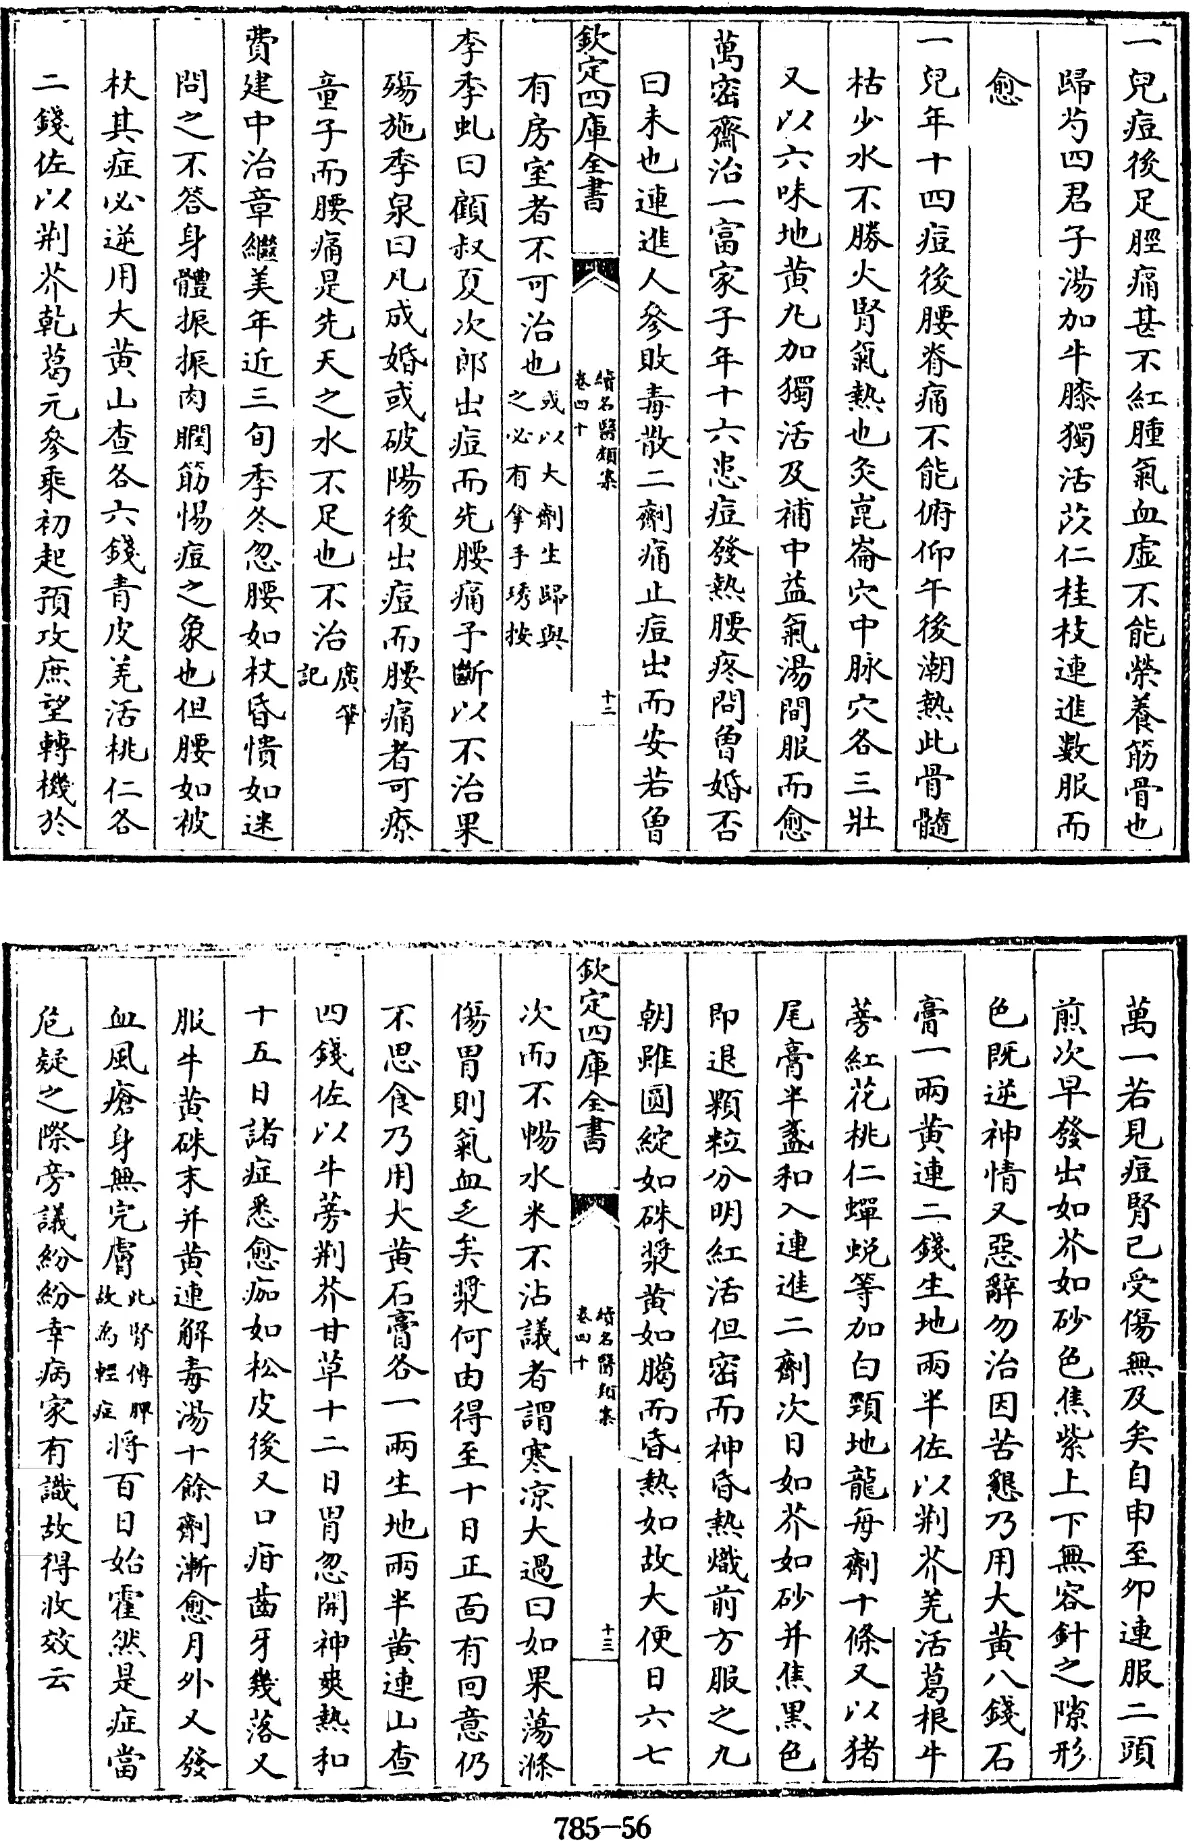 一兒痘後足脛痛甚不紅腫氣血虛不能榮養筋骨也
歸芍四君子湯加牛膝獨活茨仁桂枝連進數服而
愈
一兒年十四痘後腰脊痛不能俯仰午後潮熱此骨髓
枯少水不勝火腎氣熱也灸崑崙穴中脉穴各三壯
又以六味地黃九加獨活及補中益氣湯間服而愈
萬密齋治一富家子年十六患痘發熱腰疼問曾婚否
曰未也連進人參敗毒散二劑痛止痘出而安若曾
欽定四庫全書
續名醫類案
卷四十
十二
有房室者不可治也或以大劑生歸與之必有拿手琇按
李季虬曰顧叔夏次郎出痘而先腰痛予斷以不治果
殤施季泉曰凡成婚或破陽後出痘而腰痛者可療
童子而腰痛是先天之水不足也不治廣筆記
費建中治章繼美年近三旬季冬忽腰如杖昏憒如迷
問之不答身體振振肉瞤筋惕痘之象也但腰如被
杖其症必逆用大黃山查各六錢青皮羌活桃仁各
二錢佐以荆芥乾葛元參乘初起預攻庶望轉機於
萬一若見痘腎已受傷無及矣自申至卯連服二頭
煎次早發出如芥如砂色焦紫上下無容針之隙形
色既逆神情又惡辭勿治因苦懇乃用大黃八錢石
膏一兩黃連二錢生地兩半佐以荆芥羌活葛根牛
蒡紅花桃仁蟬蛻等加白頸地龍每劑十條又以猪
尾膏半盞和入連進二劑次日如芥如砂并焦黑色
即退顆粒分明紅活但密而神昏熱熾前方服之九
朝雖圓綻如硃漿黃如臈而昏熱如故大便日六七
欽定四庫全書
續名醫類案
卷四十
十三
次而不暢水米不沾議者謂寒凉大過曰如果蕩滌
傷胃則氣血乏矣漿何由得至十日正面有回意仍
不思食乃用大黃石膏各一兩生地兩半黃連山查
四錢佐以牛蒡荆芥甘草十二日胃忽開神爽熱和
十五日諸症悉愈痂如松皮後又口疳齒牙幾落又
服牛黃硃末并黃連解毒湯十餘劑漸愈月外又發
血風瘡身無完膚此腎傳脾故為輕症將百日始霍然是症當
危疑之際旁議紛紛幸病家有識故得收效云
785-56